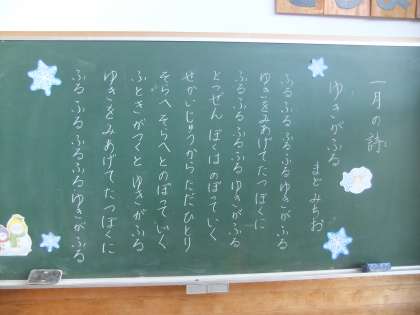 一月の詩
ゆきがふる
まど みちお
ふるふる ふるふるゆきがふる
ゆきをみあげてたつぼくに
ふるふる ふるふるゆきがふる
とつぜん ぼくはのぼっていく
せかいじゅうから ただひとり
そらへ そらへとのぼっていく
ふときがつくと ゆきがふる
ゆきをみあげてたつぼくに
ふるふる ふるふるゆきがふる